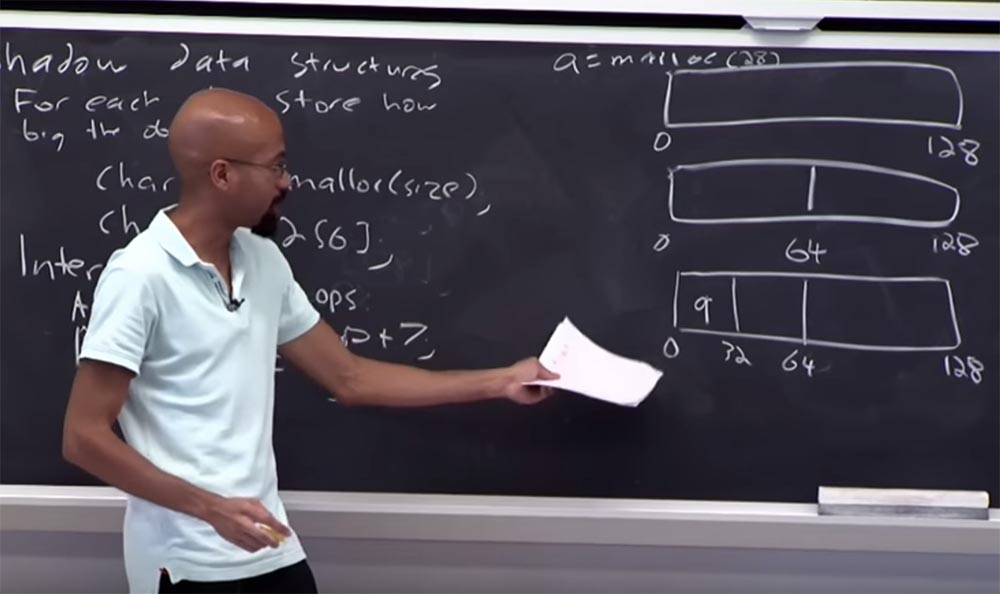 hadow data structures
For each store how
big the
char malloc(size);
256];
ops
+7;
a=malloc(28)
0 128
0 64 128
a
0 32 64 128